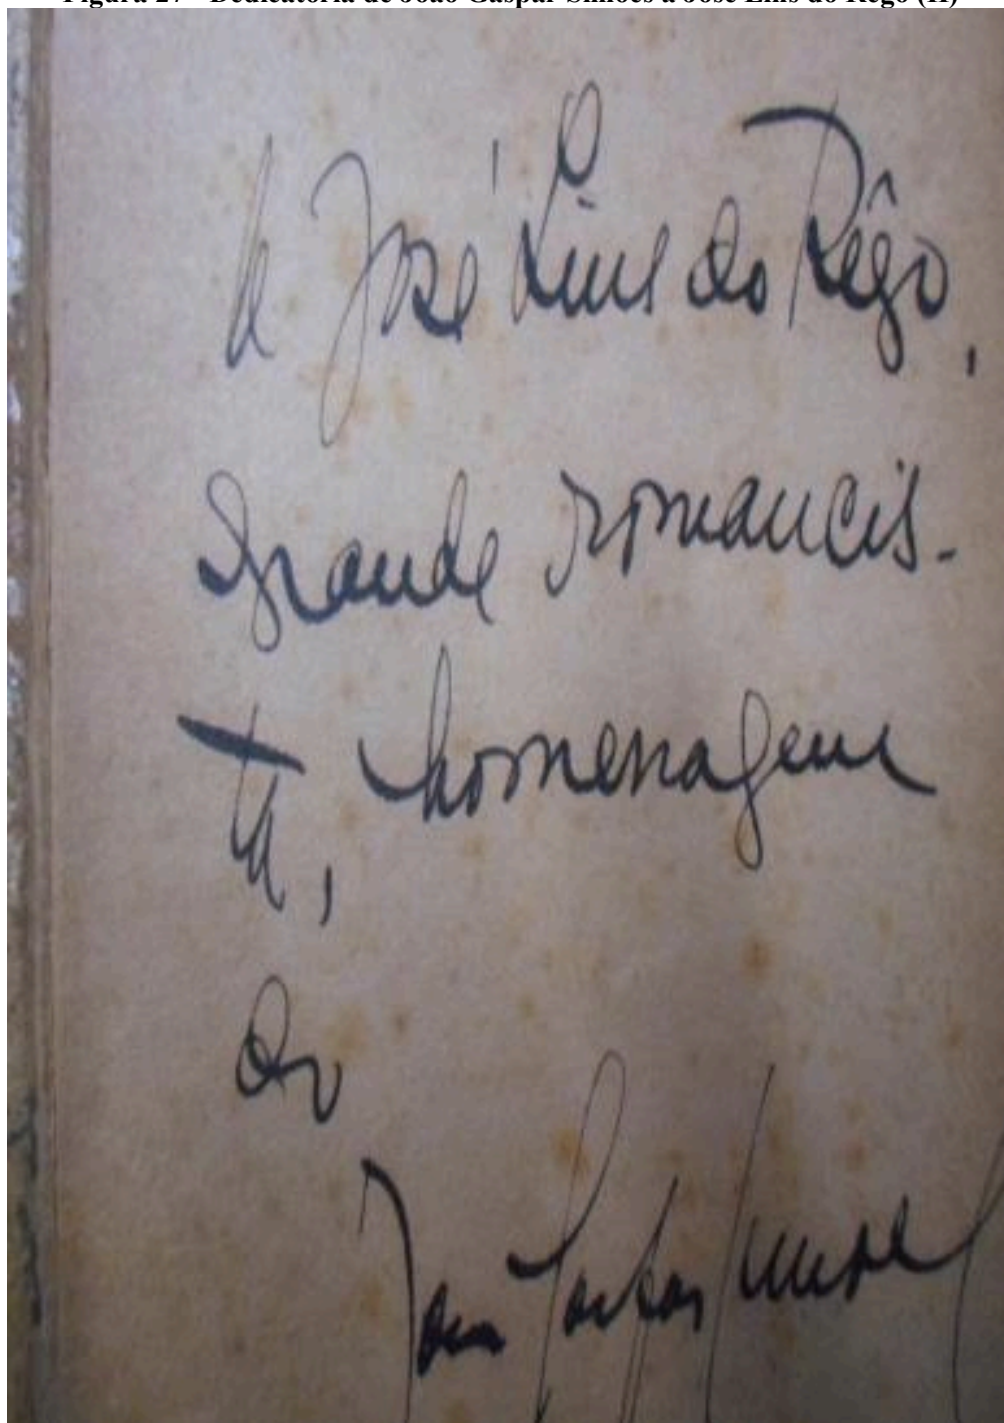 Figura 27 - Dedicatória de João Gaspar Simões a José Lins do Rêgo (II)
A José Lins do Rêgo,
grande romancis-
ta, homenagem
do
João Gaspar Simões